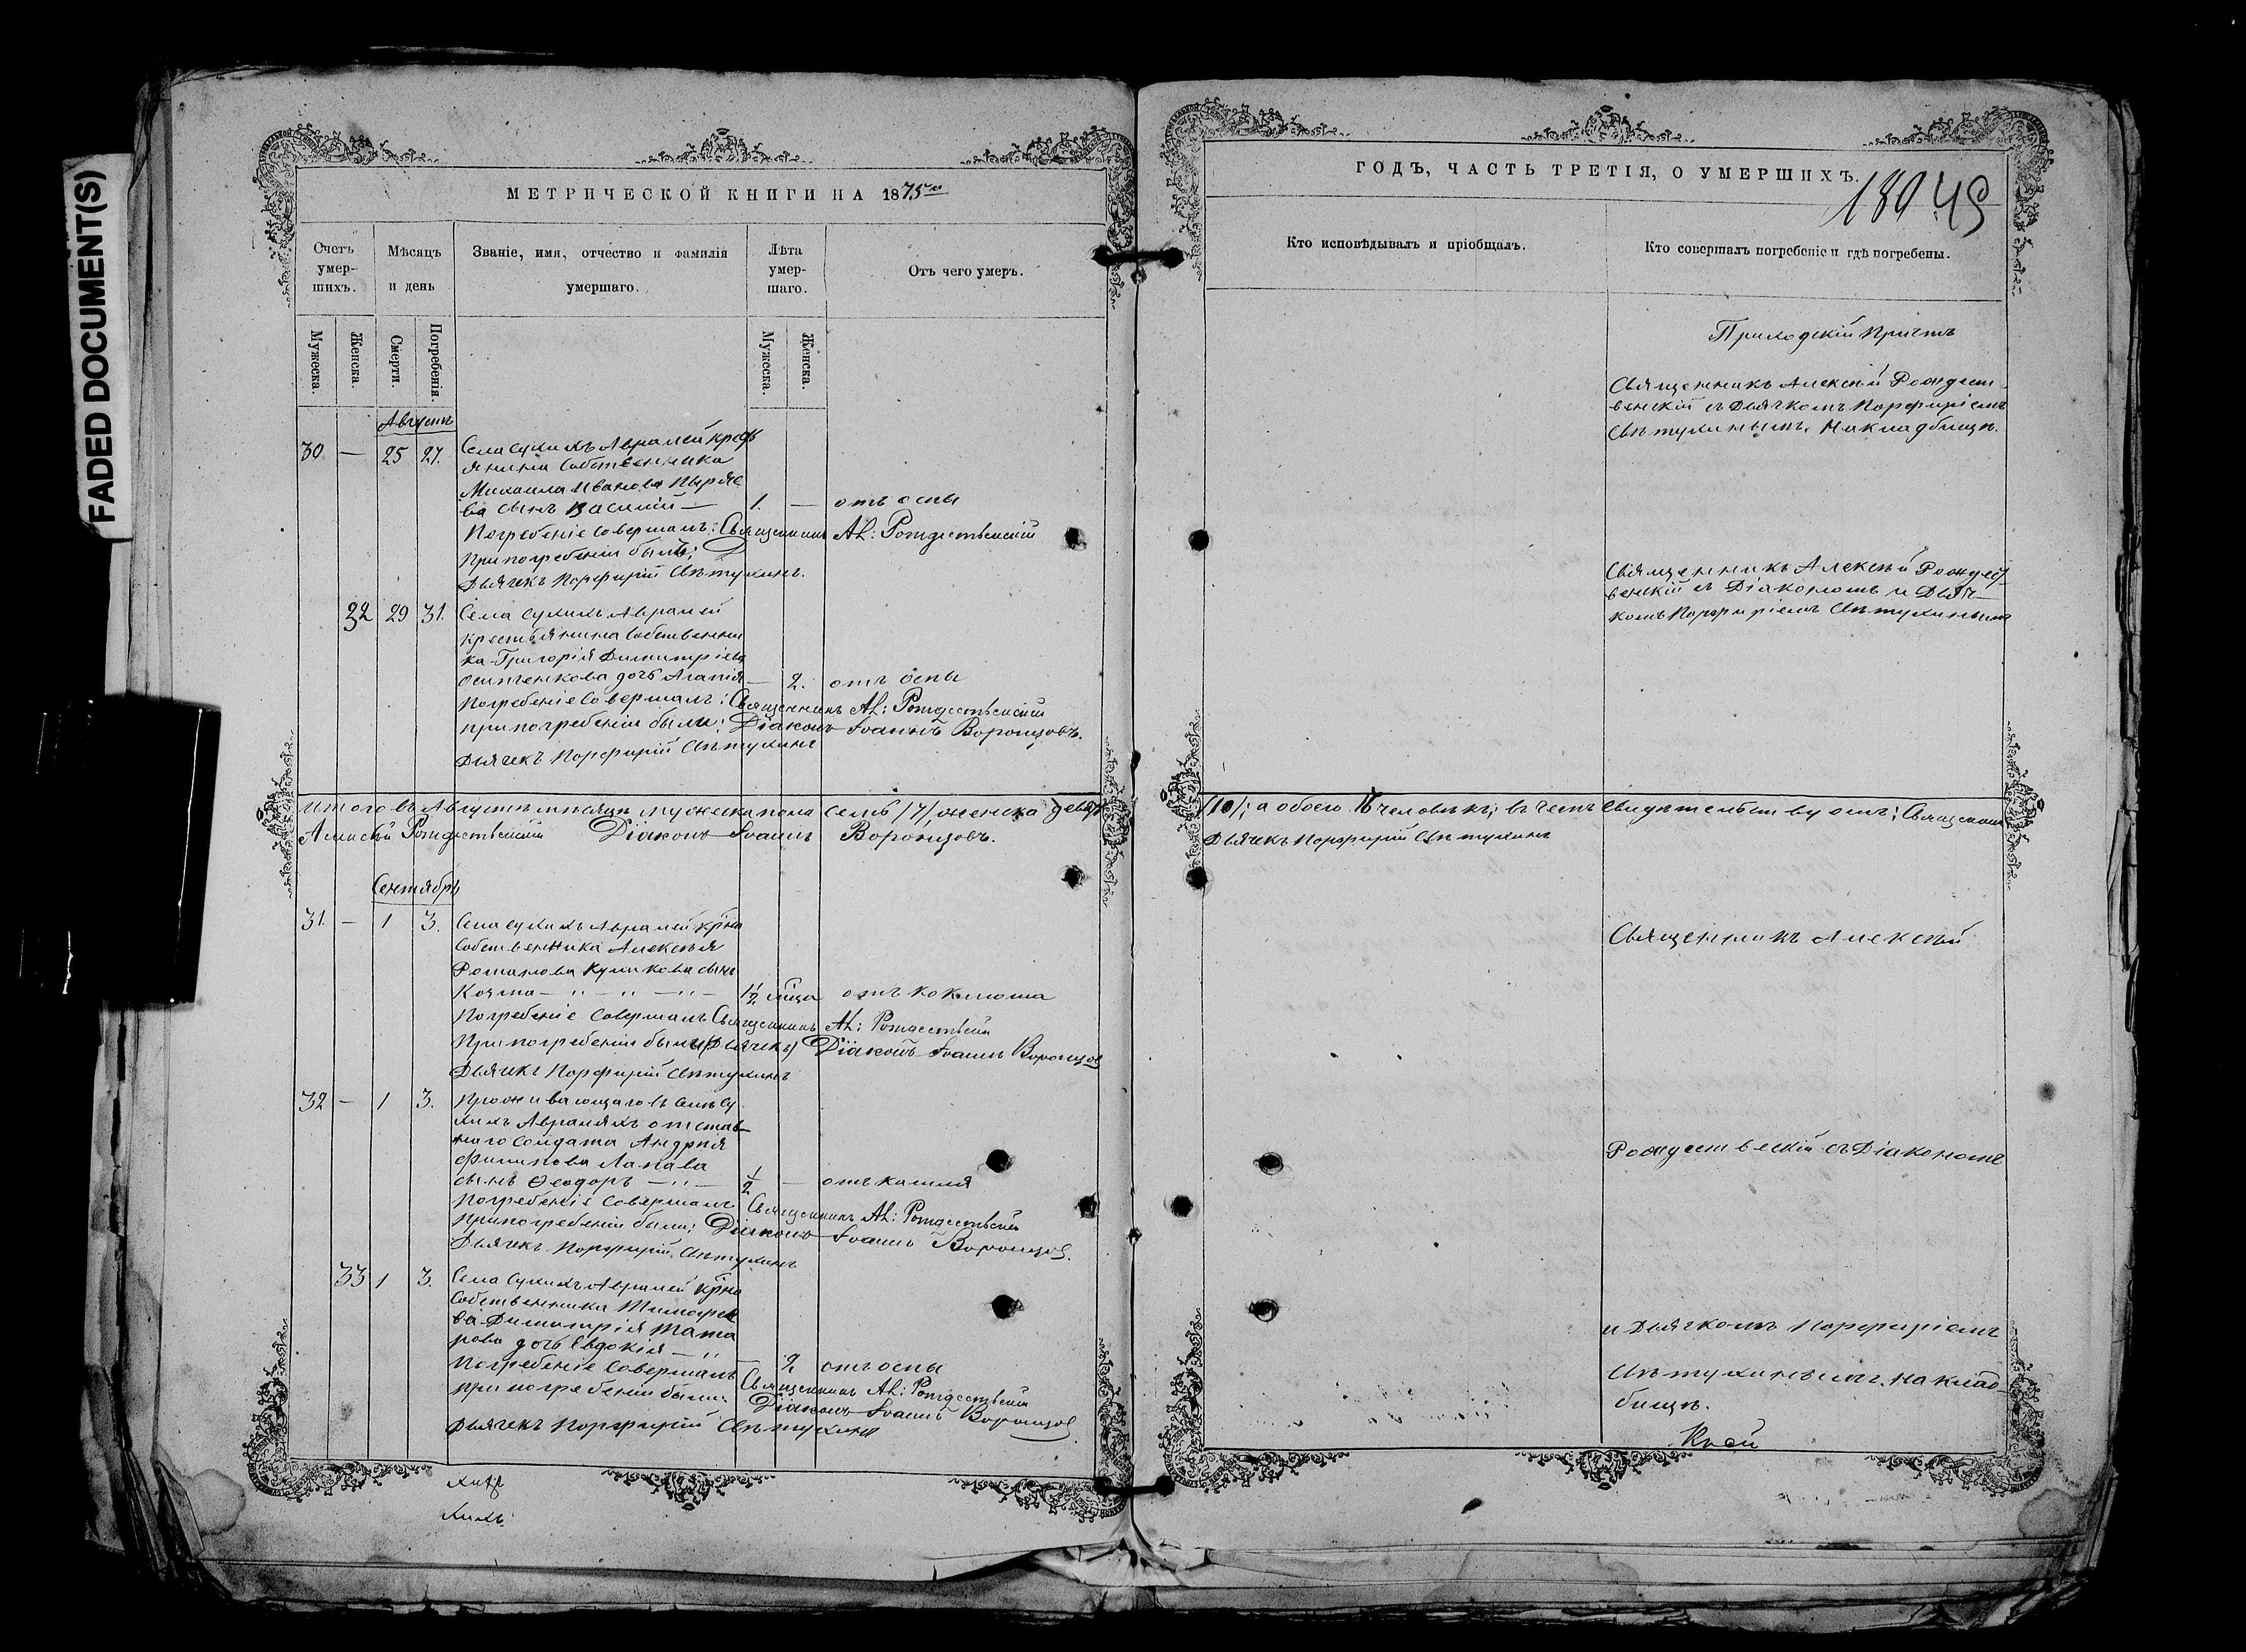 FADED DOCUMENT(S)
МЕТРИЧЕСКОЙ КНИГИ НА 1875
Счетъ умер-шихъ.
Мѣсяцъ и день
Званіе, имя, отчество и фамилія умершаго.
Лѣта умер-шаго.
Отъ чего умеръ.
Мужеска.
Женска.
Смерти.
Погребенія.
Мужеска.
Женска.
Августъ
30 — 25 27. Села Сухихъ Авралей крест
янина собственника
Михаила Иванова
ва сынъ Василій — 1. — отъ оспы
Погребеніе совершалъ: Священникъ Ал: Рождественскій
При погребеніи былъ:
Дьячекъ Порфирій
32 29 31. Села Сухихъ Авралей
крестьянина собственни
ка Григорія Димитріева
Осипенкова дочь Агапія — 2. отъ оспы
Погребеніе совершалъ: Священникъ Ал: Рождественскій
при погребеніи были: Діаконъ Іоаннъ Воронцовъ.
Дьячекъ Порфирій
Итого въ Августѣ мѣсяцѣ мужеска пола семь /7/, женска
Алексѣй Рождественскій Діаконъ Іоаннъ Воронцовъ.
Сентябрь
31. — 1 3. Села Сухихъ Авралей кр-на
собственника Алексѣя
Романова Куликова сынъ
Козма — " — " — " — 1½ мѣсца отъ коклюша
Погребеніе совершалъ Священникъ Ал: Рождествскій
При погребеніи были (Дьячекъ) Діаконъ Іоаннъ Воронцов
Дьячекъ Порфирій
32 — 1 3. Проживающаго въ селѣ Су
хихъ Авраляхъ отстав-
наго солдата Андрея
Филипова Лапаева
сынъ Ѳеодоръ — " — ½ — отъ кашля
Погребеніе совершалъ Священникъ Ал: Рождествскій
При погребеніи были: Діаконъ Іоаннъ Воронцов.
Дьячекъ Порфирій
33 1 3. Села Сухихъ Авралей кр-на
собственника Тимофее
ва Димитрія Тата
рова дочь Евдокія — " — 2 отъ оспы
Погребеніе совершалъ Священникъ Ал: Рождественскій
при погребеніи были: Діаконъ Іоаннъ Воронцов
Дьячекъ Порфирій
хихъ
ГОДЪ, ЧАСТЬ ТРЕТІЯ, О УМЕРШИХЪ.
180 49
Кто исповѣдывалъ и пріобщалъ.
Кто совершалъ погребеніе и гдѣ погребены.
Приходскій Причтъ
Священникъ Алексѣй Рождест-
венскій съ Дьячкомъ Порфиріемъ
На кладбищѣ.
Священникъ Алексѣй Рождест
венскій съ Діакономъ и Дьяч-
комъ Порфиріемъ
/10/; а обоего человѣкъ; въ чемъ свидѣтельствуютъ: Священникъ
Дьячекъ Порфирій
Священникъ Алексѣй
Рождествескій съ Діакономъ
и Дьячкомъ Порфиріемъ
на клад-
бищѣ.